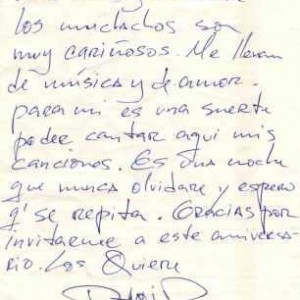 los muchachos son
muy cariñosos. Me llenan
de música y de amor.
para mi es una suerte
poder cantar aqui mis
canciones. Es una noche
que nunca olvidare y espero
q' se repita. Gracias por
invitarme a este aniversa-
rio. Los Quiere